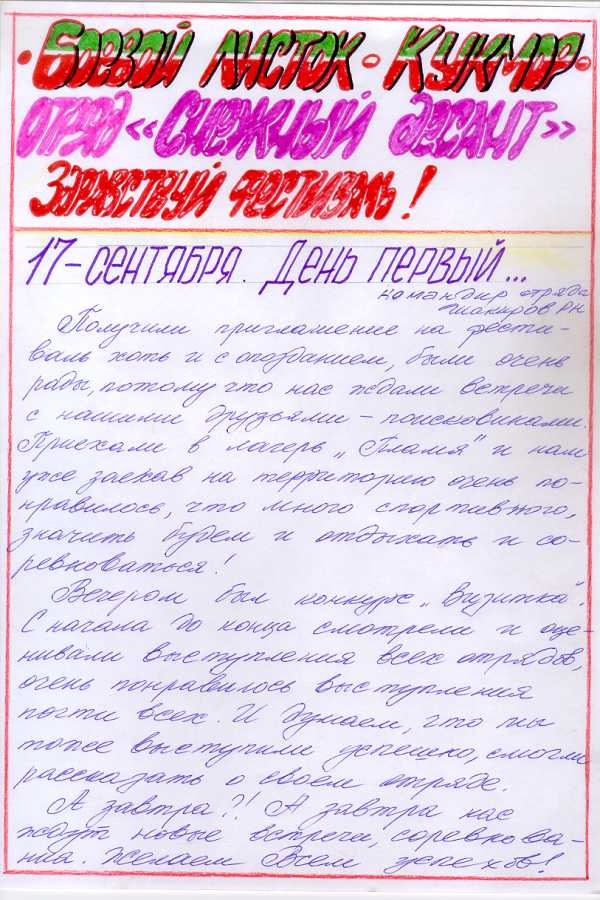 • Боевой листок • Кукмор •
отряд «Снежный десант»
Здравствуй фестиваль!
17-сентября. День первый...
командир отряда
Шакиров РН
Получили приглашение на фести-
валь хоть и с опозданием, были очень
рады, потому что нас ждали встречи
с нашими друзьями – поисковиками.
Приехали в лагерь „Пламя" и нам
уже заехав на территорию очень по-
нравилось, что много спортивного,
значить будем и отдыхать и со-
ревноваться!
Вечером был конкурс „Визитка".
С начала до конца смотрели и оце-
нивали выступления всех отрядов,
очень понравилось выступления
почти всех. И думаем, что мы
тоже выступили успешно, смогли
рассказать о своем отряде.
А завтра?! А завтра нас
ждут новые встречи, соревнова-
ния. Желаем Всем успехов!